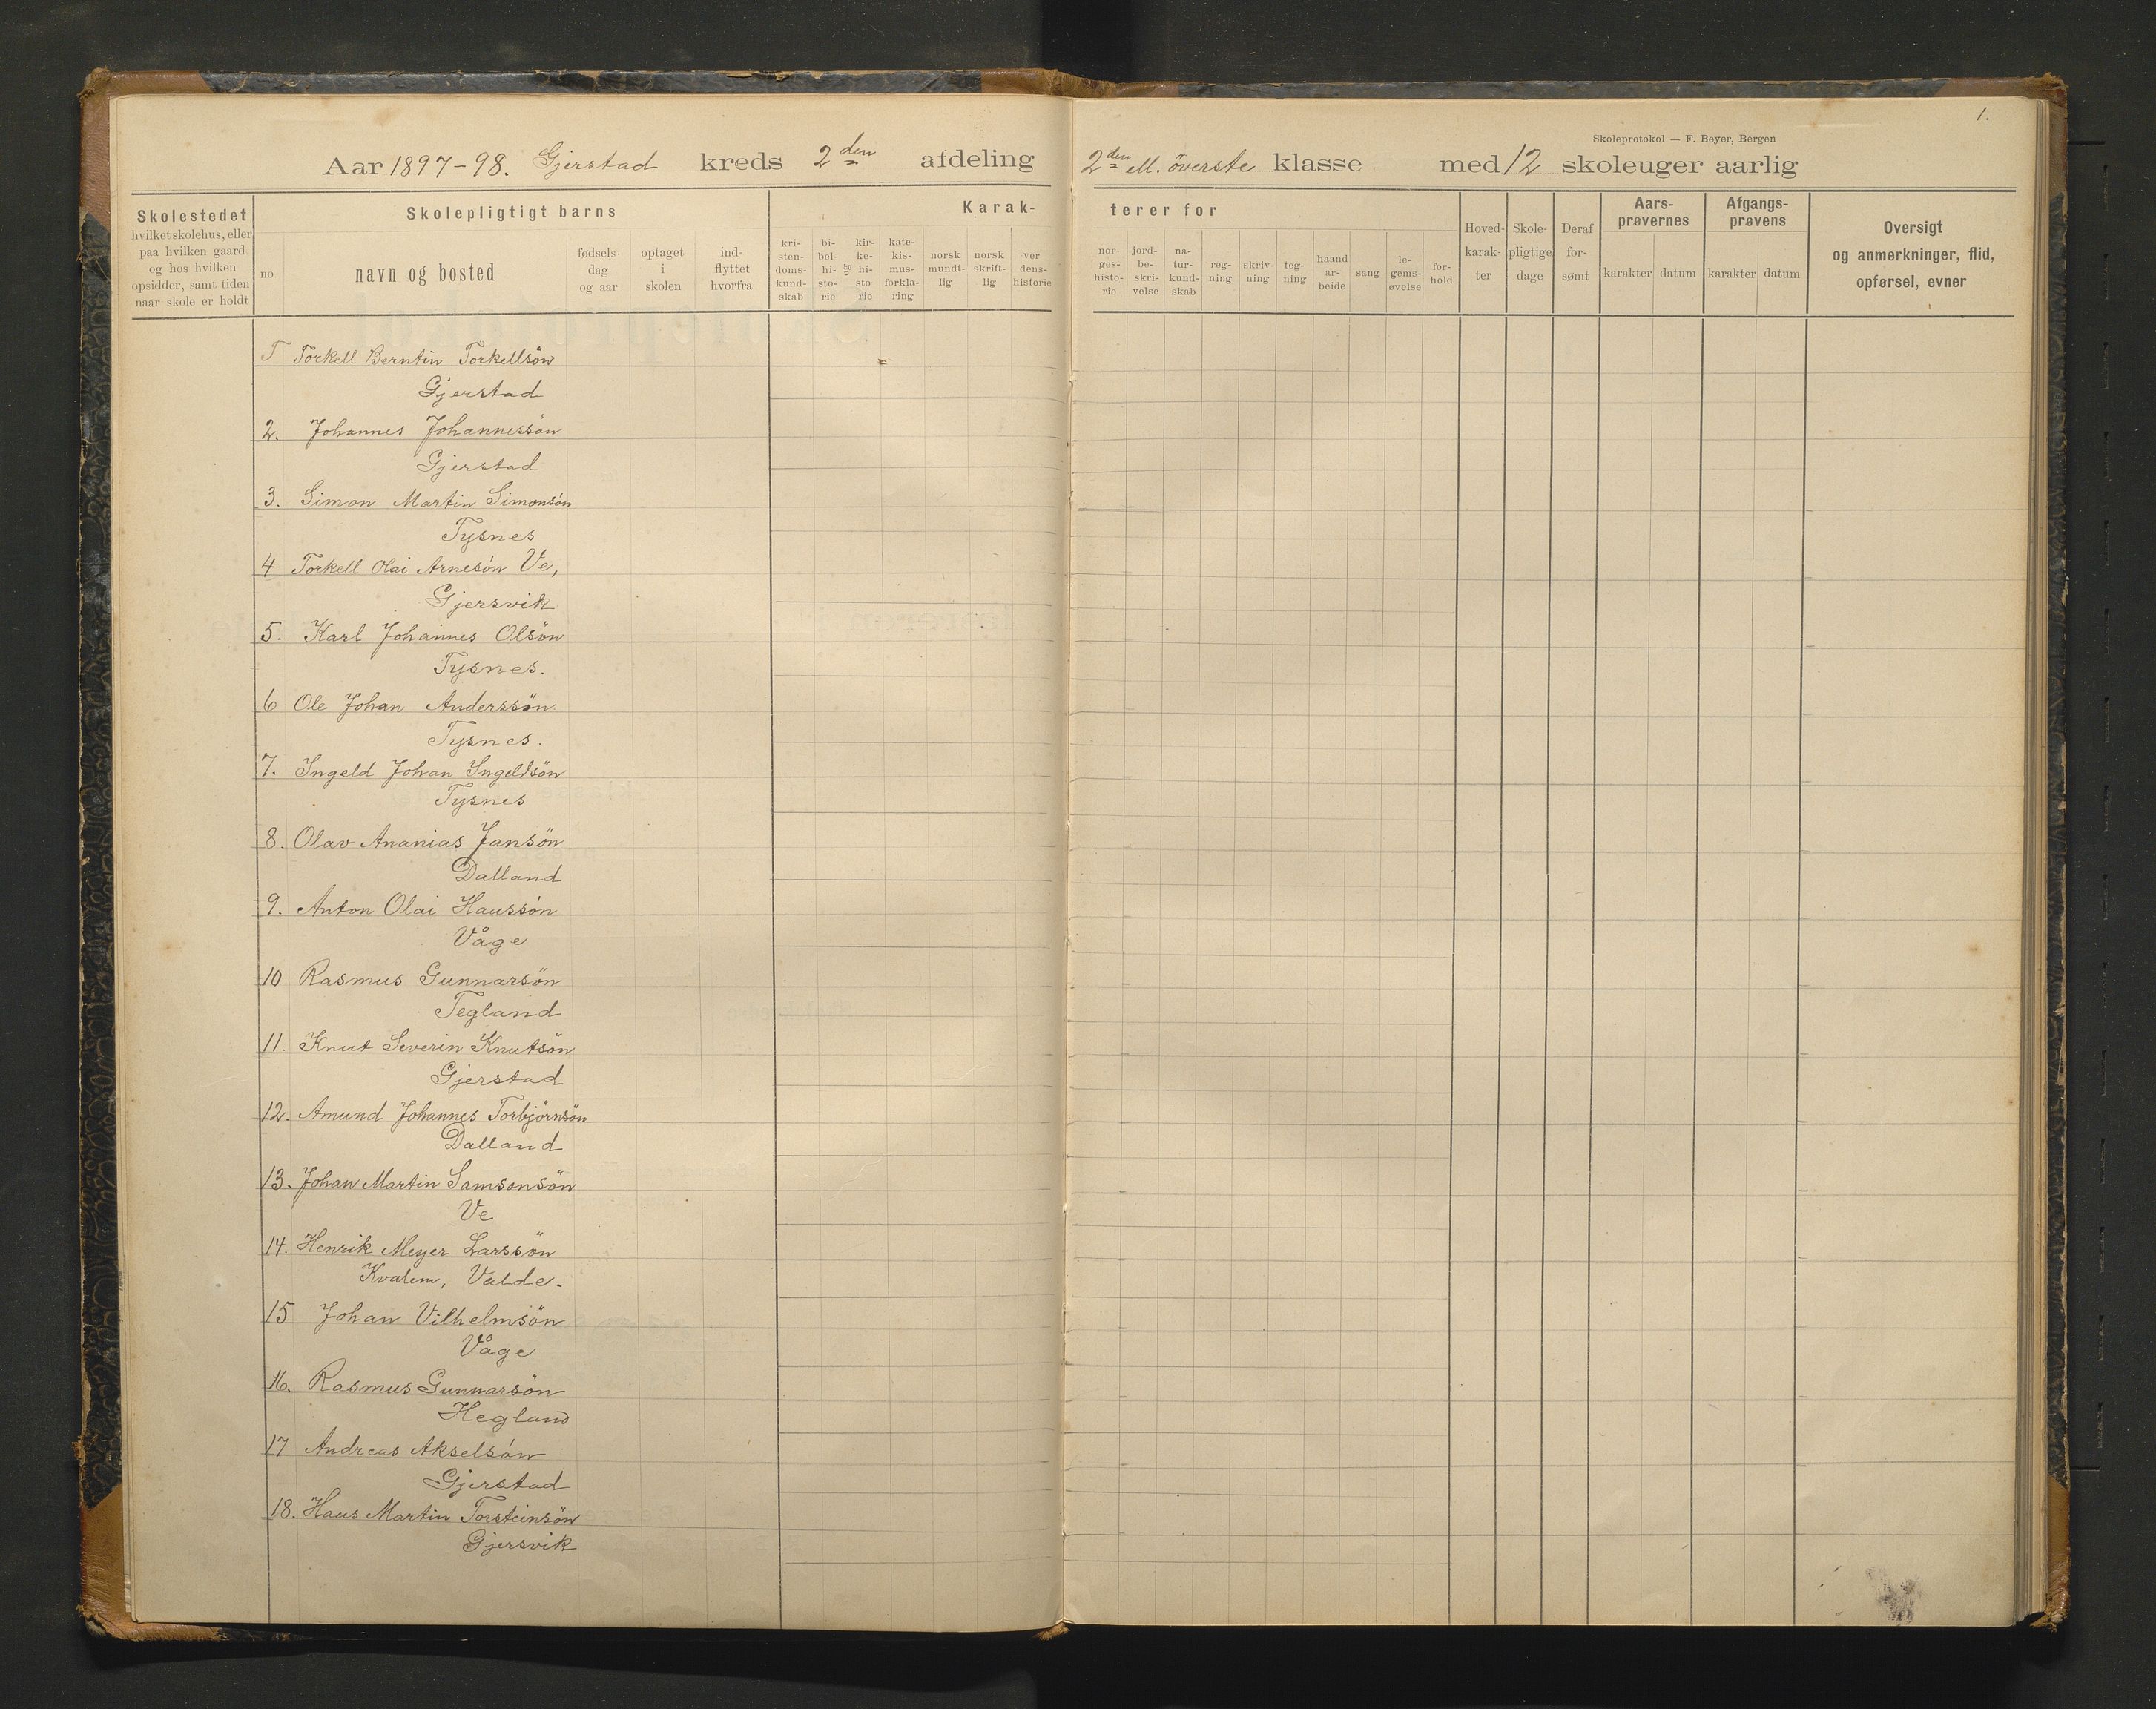 1.
Skoleprotokol — F. Beyer, Bergen
Aar 1897-98. Gjerstad kreds 2den afdeling 2den M. överste klasse med 12 skoleuger aarlig
Skolestedet
hvilket skolehus, eller
paa hvilken gaard
og hos hvilken
opsidder, samt tiden
naar skole er holdt
Skolepligtigt barns
no.
navn og bosted
fødsels-
dag
og aar
optaget
i
skolen
ind-
flyttet
hvorfra
Karak-
kri-
sten-
doms-
kund-
skab
bi-
bel-
hi-
sto-
rie
kir-
ke-
hi-
sto
rie
kate-
kis-
mus-
forkla-
ring
norsk
mundt-
lig
norsk
skrift-
lig
ver
dens-
historie
terer for
nor-
ges-
histo-
rie
jord-
be-
skri-
velse
na-
tur-
kund-
skab
reg-
ning
skriv-
ning
teg-
ning
haand
ar-
beide
sang
le-
gems-
øvelse
for-
hold
Hoved-
karak-
ter
Skole-
pligtige
dage
Deraf
for-
sømt
Aars-
prøvernes
karakter
datum
Afgangs-
prøvens
karakter
datum
Oversigt
og anmerkninger, flid,
opførsel, evner
1 Torkell Berntin Torkellsön
Gjerstad
2. Johannes Johannessön
Gjerstad
3. Simon Martin Simonsön
Tysnes
4 Torkell Olai Arnesön Ve,
Gjersvik
5. Karl Johannes Olsön
Tysnes.
6 Ole Johan Anderssön
Tysnes.
7. Ingeld Johan Ingeldsön
Tysnes
8. Olav Ananias Jansön
Dalland
9. Anton Olai Hanssön
Våge
10 Rasmus Gunnarsön
Tegland
11. Knut Severin Knutsön
Gjerstad
12. Amund Johannes Torbjörnsön
Dalland
13. Johan Martin Samsonsön
Ve
14. Henrik Meyer Larssön
Kvalem, Valde.
15 Johan Vilhelmsön
Våge
16. Rasmus Gunnarsön
Hegland
17 Andreas Akselsön
Gjerstad
18. Hans Martin Torsteinsön
Gjersvik